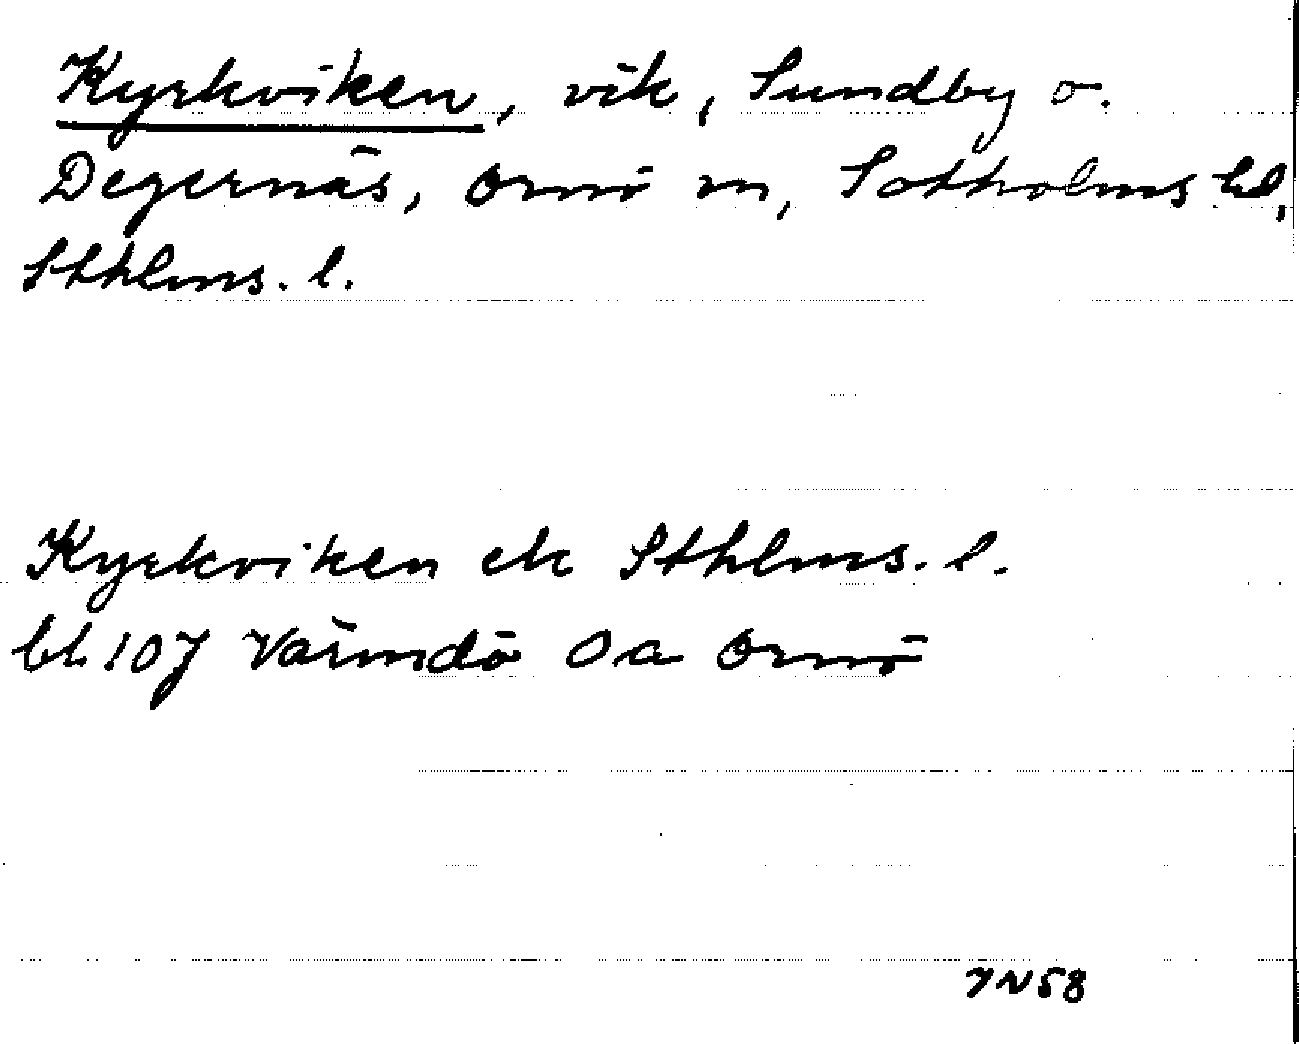 Kyrkviken, vik, Sundby o.
Degernäs, Ornö sn, Sotholms hd,
Sthlms. l.
Kyrkviken ek Sthlms. l.
bl. 107 Värmdö Oa Ornö